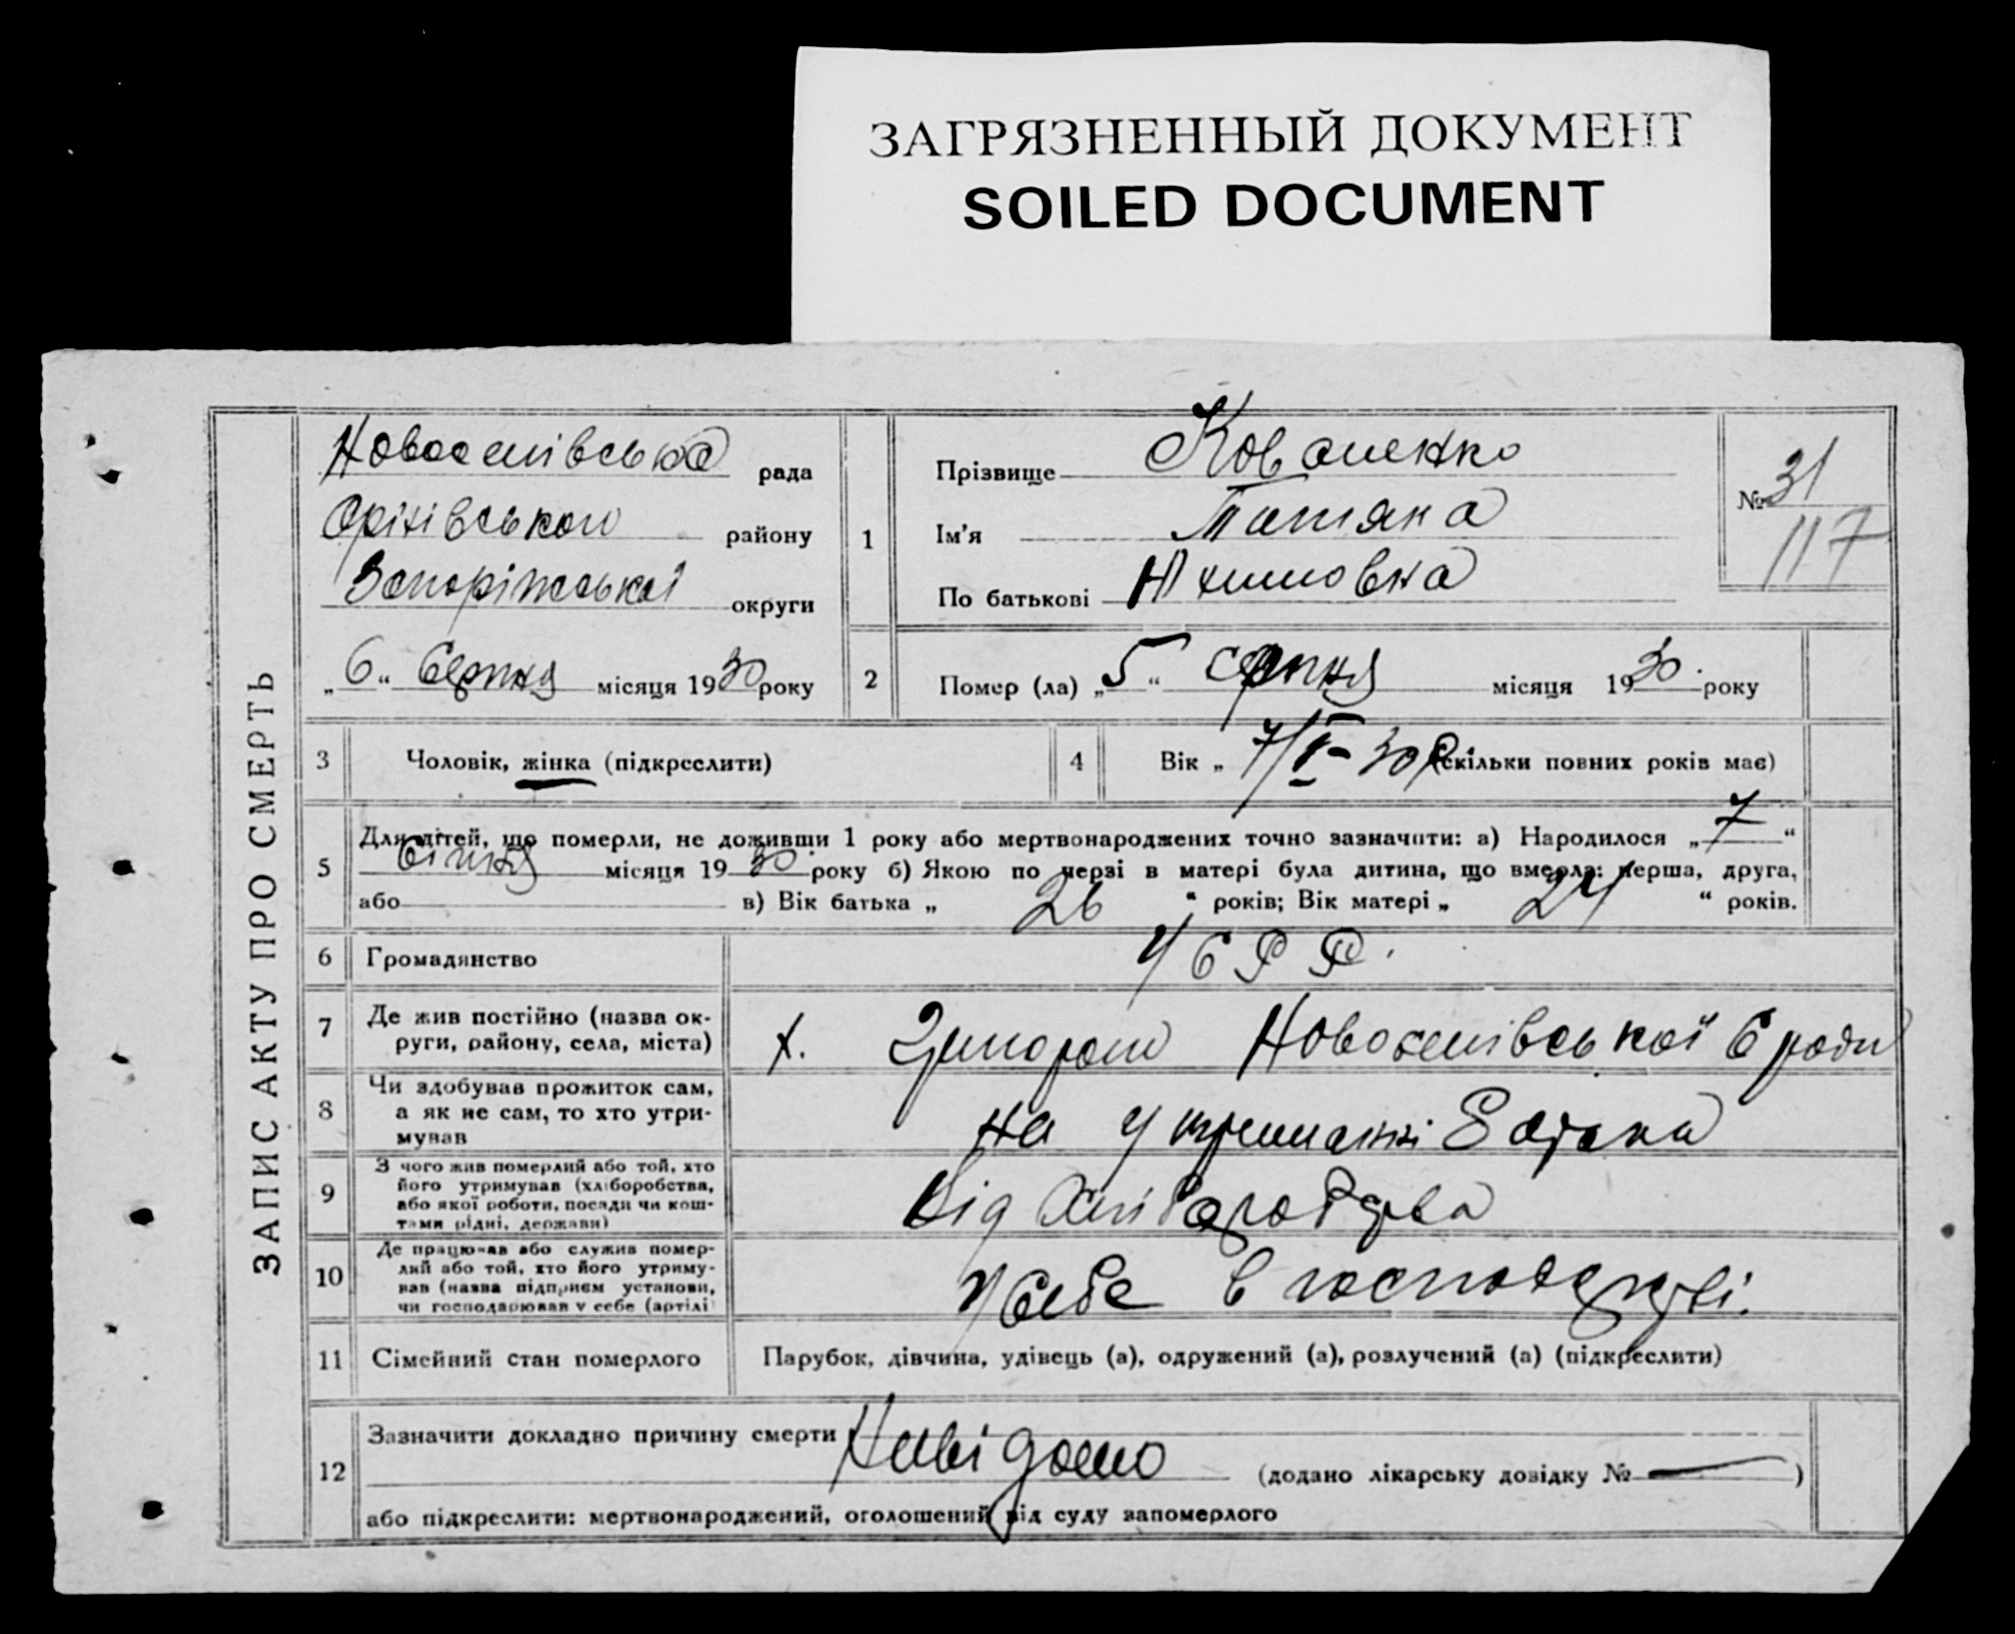 ЗАГРЯЗНЕННЫЙ ДОКУМЕНТ
SOILED DOCUMENT
ЗАПИС АКТУ ПРО СМЕРТЬ
рада
Оріхівського району
Запоріжської округи
„6“ Серпня місяця 1930 року
1
Прізвище Коваленко
Ім'я Татяна
По батькові
№ 31
117
2
Помер (ла) „5“ серпня місяця 1930 року
3
Чоловік, жінка (підкреслити)
4
Вік „ 7/ - 30 р (скільки повних років має)
5
Для дітей, що померли, не доживши 1 року або мертвонароджених точно зазначити: а) Народилося „7“
місяця 1930 року б) Якою по черзі в матері була дитина, що вмерла: перша, друга,
або в) Вік батька „ 26 “ років; Вік матері „ 24 “ років.
6
Громадянство
УСРР.
7
Де жив постійно (назва ок-
руги, району, села, міста)
х. Новоселівської С ради
8
Чи здобував прожиток сам,
а як не сам, то хто утри-
мував
На утриманні батька
9
З чого жив померлий або той, хто
його утримував (хліборобства,
або якої роботи, посади чи кош-
тами рідні, держави)
Від хліборобства
10
Де працював або служив помер-
лий або той, хто його утриму-
вав (назва підприєм установи,
чи господарював у себе (артілі
У себе в господарстві.
11
Сімейний стан померлого
Парубок, дівчина, удівець (а), одружений (а), розлучений (а) (підкреслити)
12
Зазначити докладно причину смерти Невідомо
(додано лікарську довідку № — )
або підкреслити: мертвонароджений, оголошений від суду запомерлого